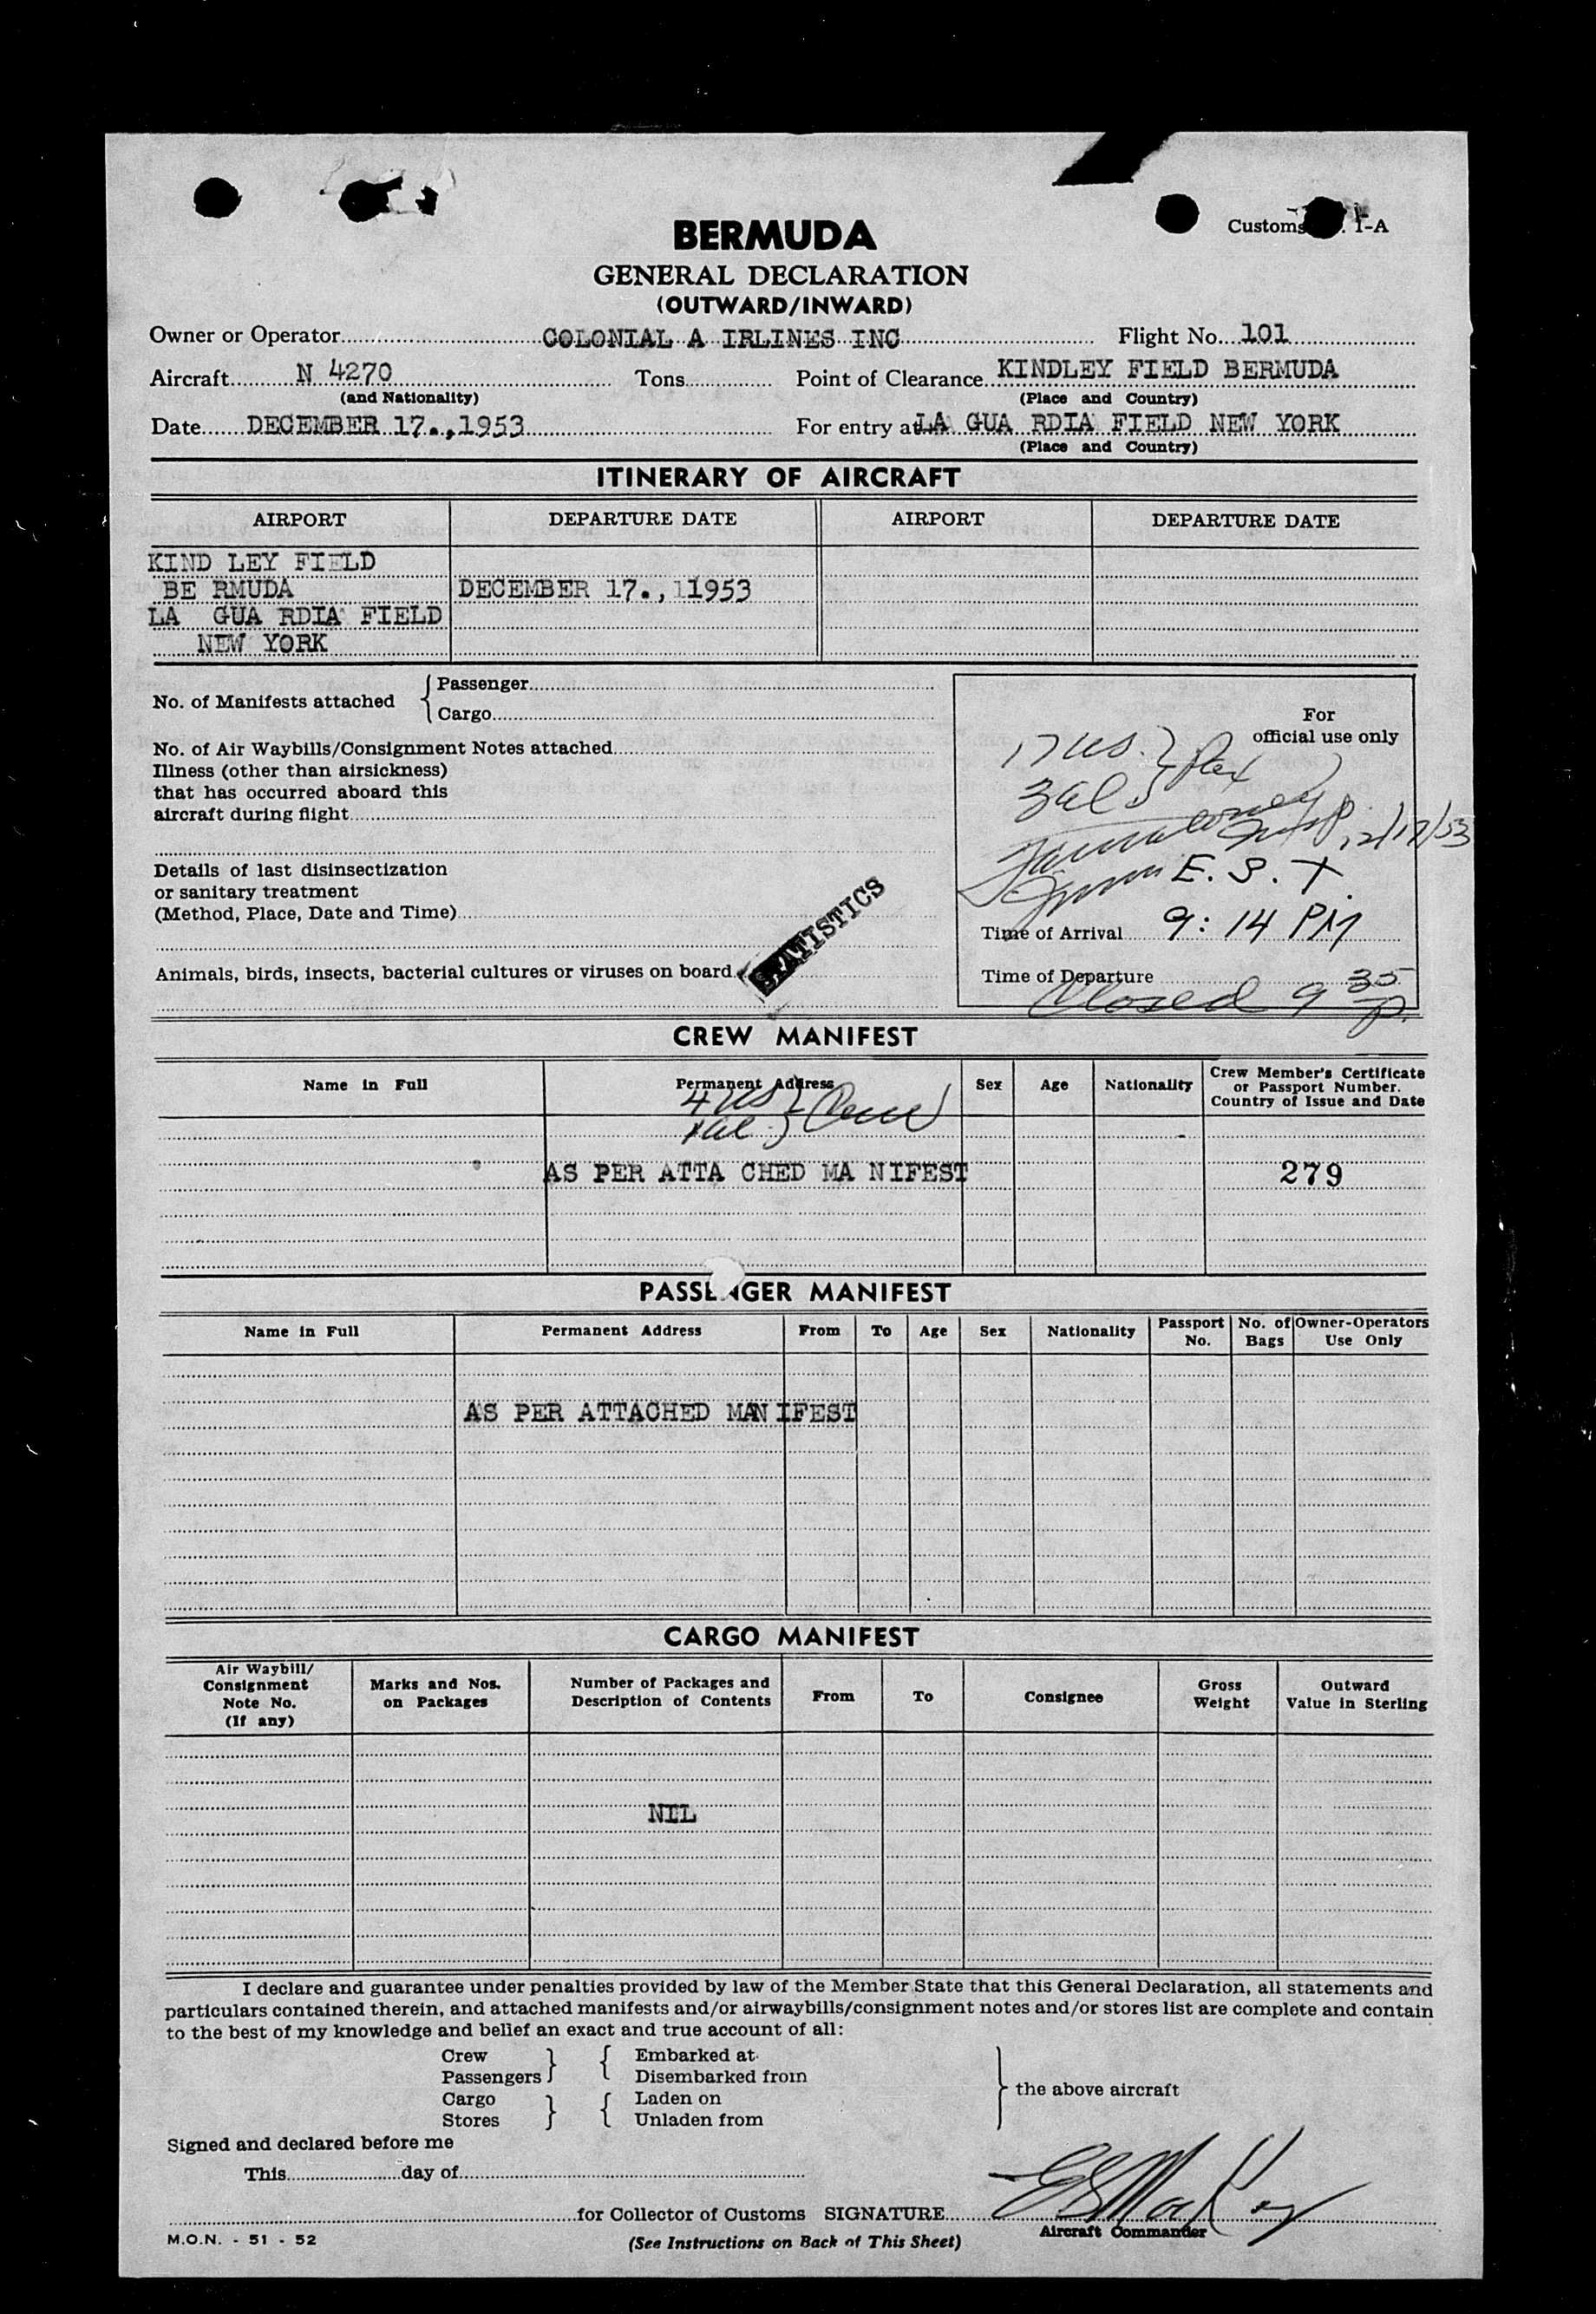 Customs . 1-A
BERMUDA
GENERAL DECLARATION
(OUTWARD/INWARD)
Owner or Operator COLONIAL A IRLINES INC Flight No. 101
Aircraft N 4270 Tons Point of Clearance KINDLEY FIELD BERMUDA
(and Nationality) (Place and Country)
Date DECEMBER 17.,1953 For entry at LA GUA RDIA FIELD NEW YORK
(Place and Country)
ITINERARY OF AIRCRAFT
AIRPORT DEPARTURE DATE AIRPORT DEPARTURE DATE
KIND LEY FIELD
BE RMUDA DECEMBER 17., 11953
LA GUA RDIA FIELD
NEW YORK
No. of Manifests attached { Passenger
Cargo
For
official use only
17 US. }
3 al }
12/17/53
E.S.T.
No. of Air Waybills/Consignment Notes attached
Illness (other than airsickness)
that has occurred aboard this
aircraft during flight
Details of last disinsectization
or sanitary treatment
(Method, Place, Date and Time)
STATISTICS
Time of Arrival 9:14 PM
Animals, birds, insects, bacterial cultures or viruses on board
Time of Departure
Closed 9 35 P.
CREW MANIFEST
Name in Full Permanent Address Sex Age Nationality Crew Member's Certificate
or Passport Number.
Country of Issue and Date
4 US } Crew
1 al. }
AS PER ATTA CHED MA NIFEST 279
PASSENGER MANIFEST
Name in Full Permanent Address From To Age Sex Nationality Passport No. No. of Bags Owner-Operators Use Only
AS PER ATTACHED MAN IFEST
CARGO MANIFEST
Air Waybill/
Consignment
Note No.
(If any)
Marks and Nos.
on Packages
Number of Packages and
Description of Contents
From To Consignee
Gross
Weight
Outward
Value in Sterling
NIL
I declare and guarantee under penalties provided by law of the Member State that this General Declaration, all statements and
particulars contained therein, and attached manifests and/or airwaybills/consignment notes and/or stores list are complete and contain
to the best of my knowledge and belief an exact and true account of all:
Crew } { Embarked at
Passengers } { Disembarked from
the above aircraft
Cargo } { Laden on
Stores } { Unladen from
Signed and declared before me
This day of
for Collector of Customs SIGNATURE
Aircraft Commander
M.O.N. - 51 - 52 (See Instructions on Back of This Sheet)